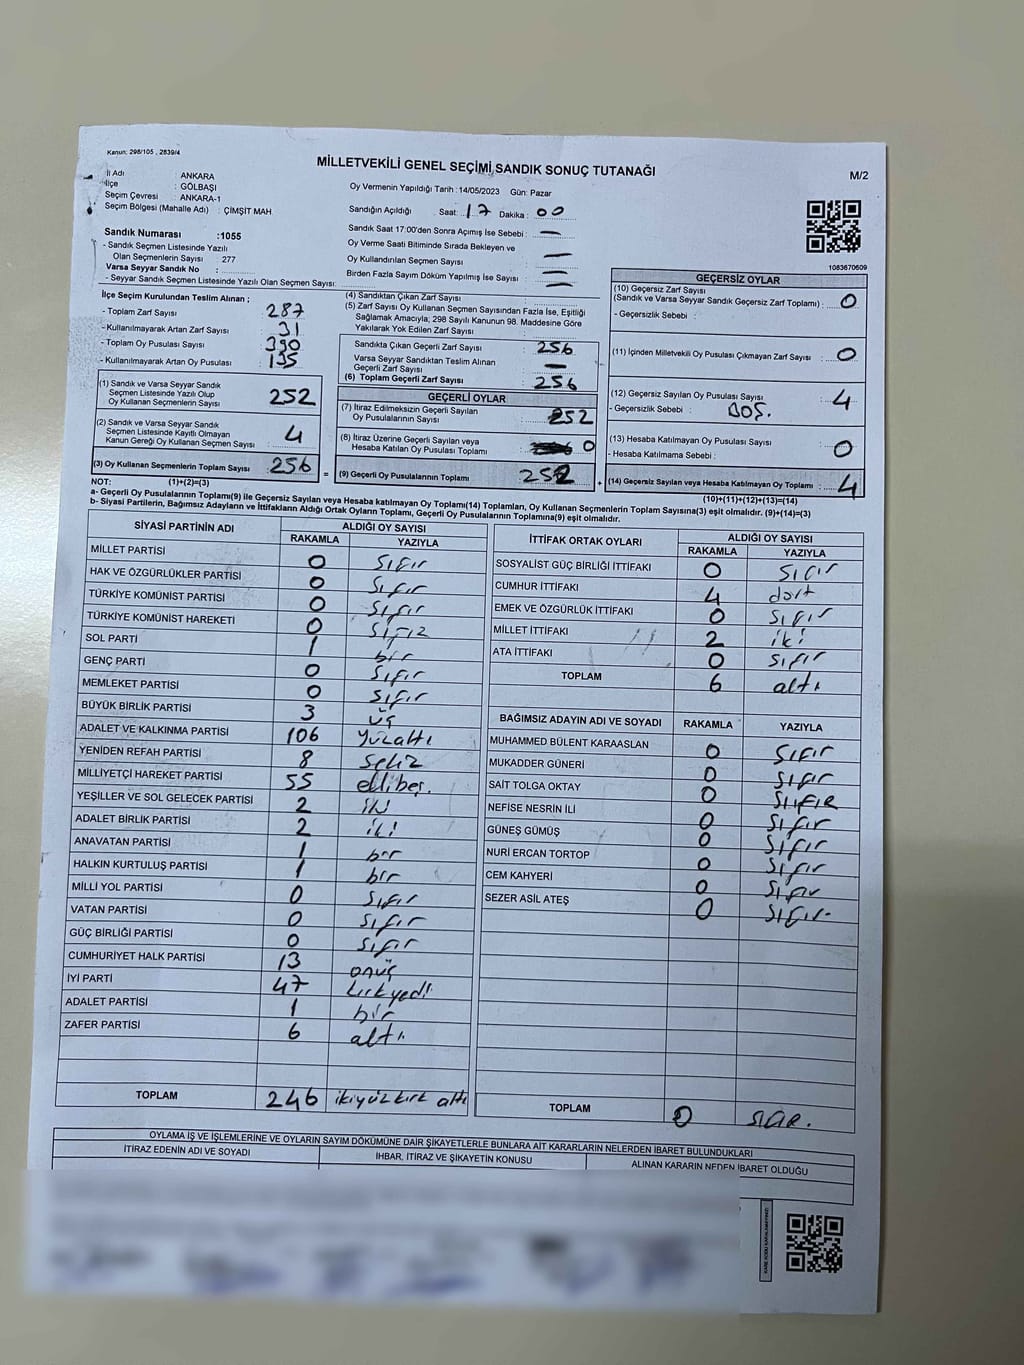 Kanun: 298/105 , 2839/4
MİLLETVEKİLİ GENEL SEÇİMİ SANDIK SONUÇ TUTANAĞI
M/2
İl Adı : ANKARA
İlçe : GÖLBAŞI
Seçim Çevresi : ANKARA-1
Seçim Bölgesi (Mahalle Adı) : ÇİMŞİT MAH
Sandık Numarası :1055
- Sandık Seçmen Listesinde Yazılı
Olan Seçmenlerin Sayısı : 277
Varsa Seyyar Sandık No :
- Seyyar Sandık Seçmen Listesinde Yazılı Olan Seçmen Sayısı:
Oy Vermenin Yapıldığı Tarih : 14/05/2023 Gün: Pazar
Sandığın Açıldığı Saat: 17 Dakika : 00
Sandık Saat 17:00'den Sonra Açımış İse Sebebi : —
Oy Verme Saati Bitiminde Sırada Bekleyen ve
Oy Kullandırılan Seçmen Sayısı : —
Birden Fazla Sayım Döküm Yapılmış İse Sayısı : —
1083670609
İlçe Seçim Kurulundan Teslim Alınan ;
- Toplam Zarf Sayısı : 287
- Kullanılmayarak Artan Zarf Sayısı : 31
- Toplam Oy Pusulası Sayısı : 390
- Kullanılmayarak Artan Oy Pusulası : 135
(1) Sandık ve Varsa Seyyar Sandık
Seçmen Listesinde Yazılı Olup
Oy Kullanan Seçmenlerin Sayısı : 252
(2) Sandık ve Varsa Seyyar Sandık
Seçmen Listesinde Kayıtlı Olmayan
Kanun Gereği Oy Kullanan Seçmen Sayısı : 4
(3) Oy Kullanan Seçmenlerin Toplam Sayısı : 256
(4) Sandıktan Çıkan Zarf Sayısı :
(5) Zarf Sayısı Oy Kullanan Seçmen Sayısından Fazla İse, Eşitliği
Sağlamak Amacıyla; 298 Sayılı Kanunun 98. Maddesine Göre
Yakılarak Yok Edilen Zarf Sayısı :
Sandıkta Çıkan Geçerli Zarf Sayısı : 256
Varsa Seyyar Sandıktan Teslim Alınan
Geçerli Zarf Sayısı : —
(6) Toplam Geçerli Zarf Sayısı : 256
GEÇERLİ OYLAR
(7) İtiraz Edilmeksizin Geçerli Sayılan
Oy Pusulalarının Sayısı : 252
(8) İtiraz Üzerine Geçerli Sayılan veya
Hesaba Katılan Oy Pusulası Toplamı : 0
= (9) Geçerli Oy Pusulalarının Toplamı : 252 +
GEÇERSİZ OYLAR
(10) Geçersiz Zarf Sayısı
(Sandık ve Varsa Seyyar Sandık Geçersiz Zarf Toplamı) : 0
- Geçersizlik Sebebi :
(11) İçinden Milletvekili Oy Pusulası Çıkmayan Zarf Sayısı : 0
(12) Geçersiz Sayılan Oy Pusulası Sayısı : 4
- Geçersizlik Sebebi : BOŞ.
(13) Hesaba Katılmayan Oy Pusulası Sayısı : 0
- Hesaba Katılmama Sebebi :
(14) Geçersiz Sayılan veya Hesaba Katılmayan Oy Toplamı : 4
NOT: (1)+(2)=(3)
(10)+(11)+(12)+(13)=(14)
a- Geçerli Oy Pusulalarının Toplamı(9) ile Geçersiz Sayılan veya Hesaba katılmayan Oy Toplamı(14) Toplamları, Oy Kullanan Seçmenlerin Toplam Sayısına(3) eşit olmalıdır. (9)+(14)=(3)
b- Siyasi Partilerin, Bağımsız Adayların ve İttifakların Aldığı Ortak Oyların Toplamı, Geçerli Oy Pusulalarının Toplamına(9) eşit olmalıdır.
SİYASİ PARTİNİN ADI ALDIĞI OY SAYISI
RAKAMLA YAZIYLA
MİLLET PARTİSİ 0 sıfır
HAK VE ÖZGÜRLÜKLER PARTİSİ 0 sıfır
TÜRKİYE KOMÜNİST PARTİSİ 0 sıfır
TÜRKİYE KOMÜNİST HAREKETİ 0 sıfır
SOL PARTİ 1 bir
GENÇ PARTİ 0 sıfır
MEMLEKET PARTİSİ 0 sıfır
BÜYÜK BİRLİK PARTİSİ 3 üç
ADALET VE KALKINMA PARTİSİ 106 yüzaltı
YENİDEN REFAH PARTİSİ 8 sekiz
MİLLİYETÇİ HAREKET PARTİSİ 55 ellibeş.
YEŞİLLER VE SOL GELECEK PARTİSİ 2 iki
ADALET BİRLİK PARTİSİ 2 iki
ANAVATAN PARTİSİ 1 bir
HALKIN KURTULUŞ PARTİSİ 1 bir
MİLLİ YOL PARTİSİ 0 sıfır
VATAN PARTİSİ 0 sıfır
GÜÇ BİRLİĞİ PARTİSİ 0 sıfır
CUMHURİYET HALK PARTİSİ 13 onüç
İYİ PARTİ 47 kırkyedi
ADALET PARTİSİ 1 bir
ZAFER PARTİSİ 6 altı
TOPLAM 246 ikiyüzkırk altı
İTTİFAK ORTAK OYLARI ALDIĞI OY SAYISI
RAKAMLA YAZIYLA
SOSYALİST GÜÇ BİRLİĞİ İTTİFAKI 0 sıfır
CUMHUR İTTİFAKI 4 dört
EMEK VE ÖZGÜRLÜK İTTİFAKI 0 sıfır
MİLLET İTTİFAKI 2 iki
ATA İTTİFAKI 0 sıfır
TOPLAM 6 altı
BAĞIMSIZ ADAYIN ADI VE SOYADI RAKAMLA YAZIYLA
MUHAMMED BÜLENT KARAASLAN 0 sıfır
MUKADDER GÜNERİ 0 sıfır
SAİT TOLGA OKTAY 0 sıfır
NEFİSE NESRİN İLİ 0 sıfır
GÜNEŞ GÜMÜŞ 0 sıfır
NURİ ERCAN TORTOP 0 sıfır
CEM KAHYERİ 0 sıfır
SEZER ASİL ATEŞ 0 sıfır.
TOPLAM 0
OYLAMA İŞ VE İŞLEMLERİNE VE OYLARIN SAYIM DÖKÜMÜNE DAİR ŞİKAYETLERLE BUNLARA AİT KARARLARIN NELERDEN İBARET BULUNDUKLARI
İTİRAZ EDENİN ADI VE SOYADI İHBAR, İTİRAZ VE ŞİKAYETİN KONUSU ALINAN KARARIN NEDEN İBARET OLDUĞU